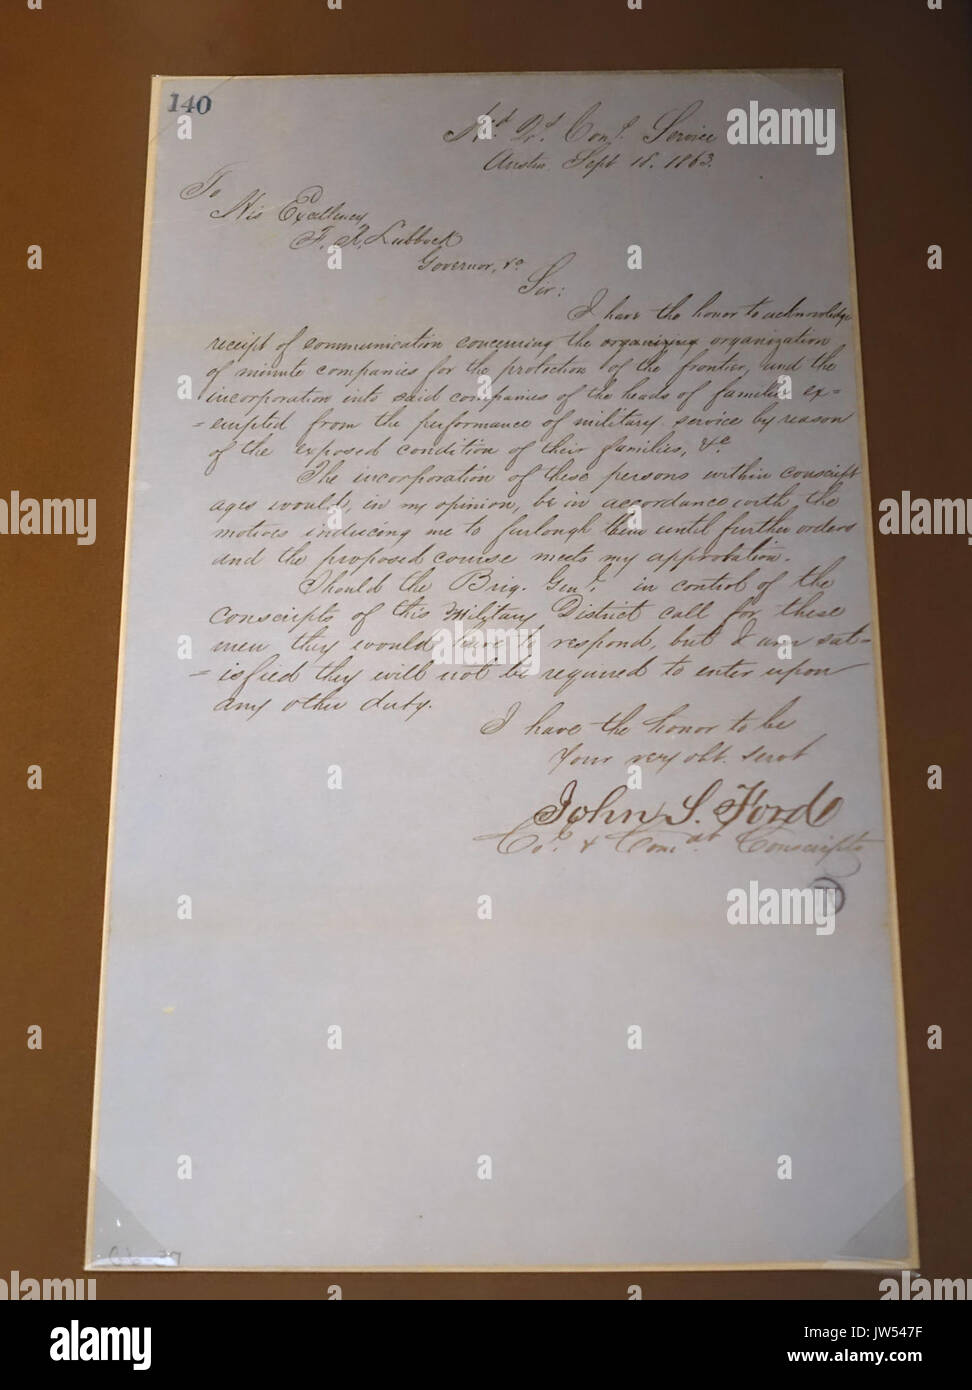 140
Hd. Qrs. Cons. Service
Austin. Sept. 18. 1863.
To
His Excellency
F. R. Lubbock
Governor, &c
Sir:
I have the honor to acknowledge
receipt of communication concerning the organizing organization
of minute companies for the protection of the frontier, and the
incorporation into said companies of the heads of families ex-
-empted from the performance of military service by reason
of the exposed condition of their families, &c.
The incorporation of these persons within conscript
ages would, in my opinion, be in accordance with the
motives inducing me to furlough them until further orders
and the proposed course meets my approbation.
Should the Brig. Genl. in control of the
conscripts of this Military District call for these
men, they would have to respond, but I am sat-
-isfied they will not be required to enter upon
any other duty.
I have the honor to be
Your very obt. servt
John S. Ford
Col. & Comdt. Conscripts
alamy
alamy
alamy
alamy
alamy
alamy
alamy stock photo
JW547F
www.alamy.com